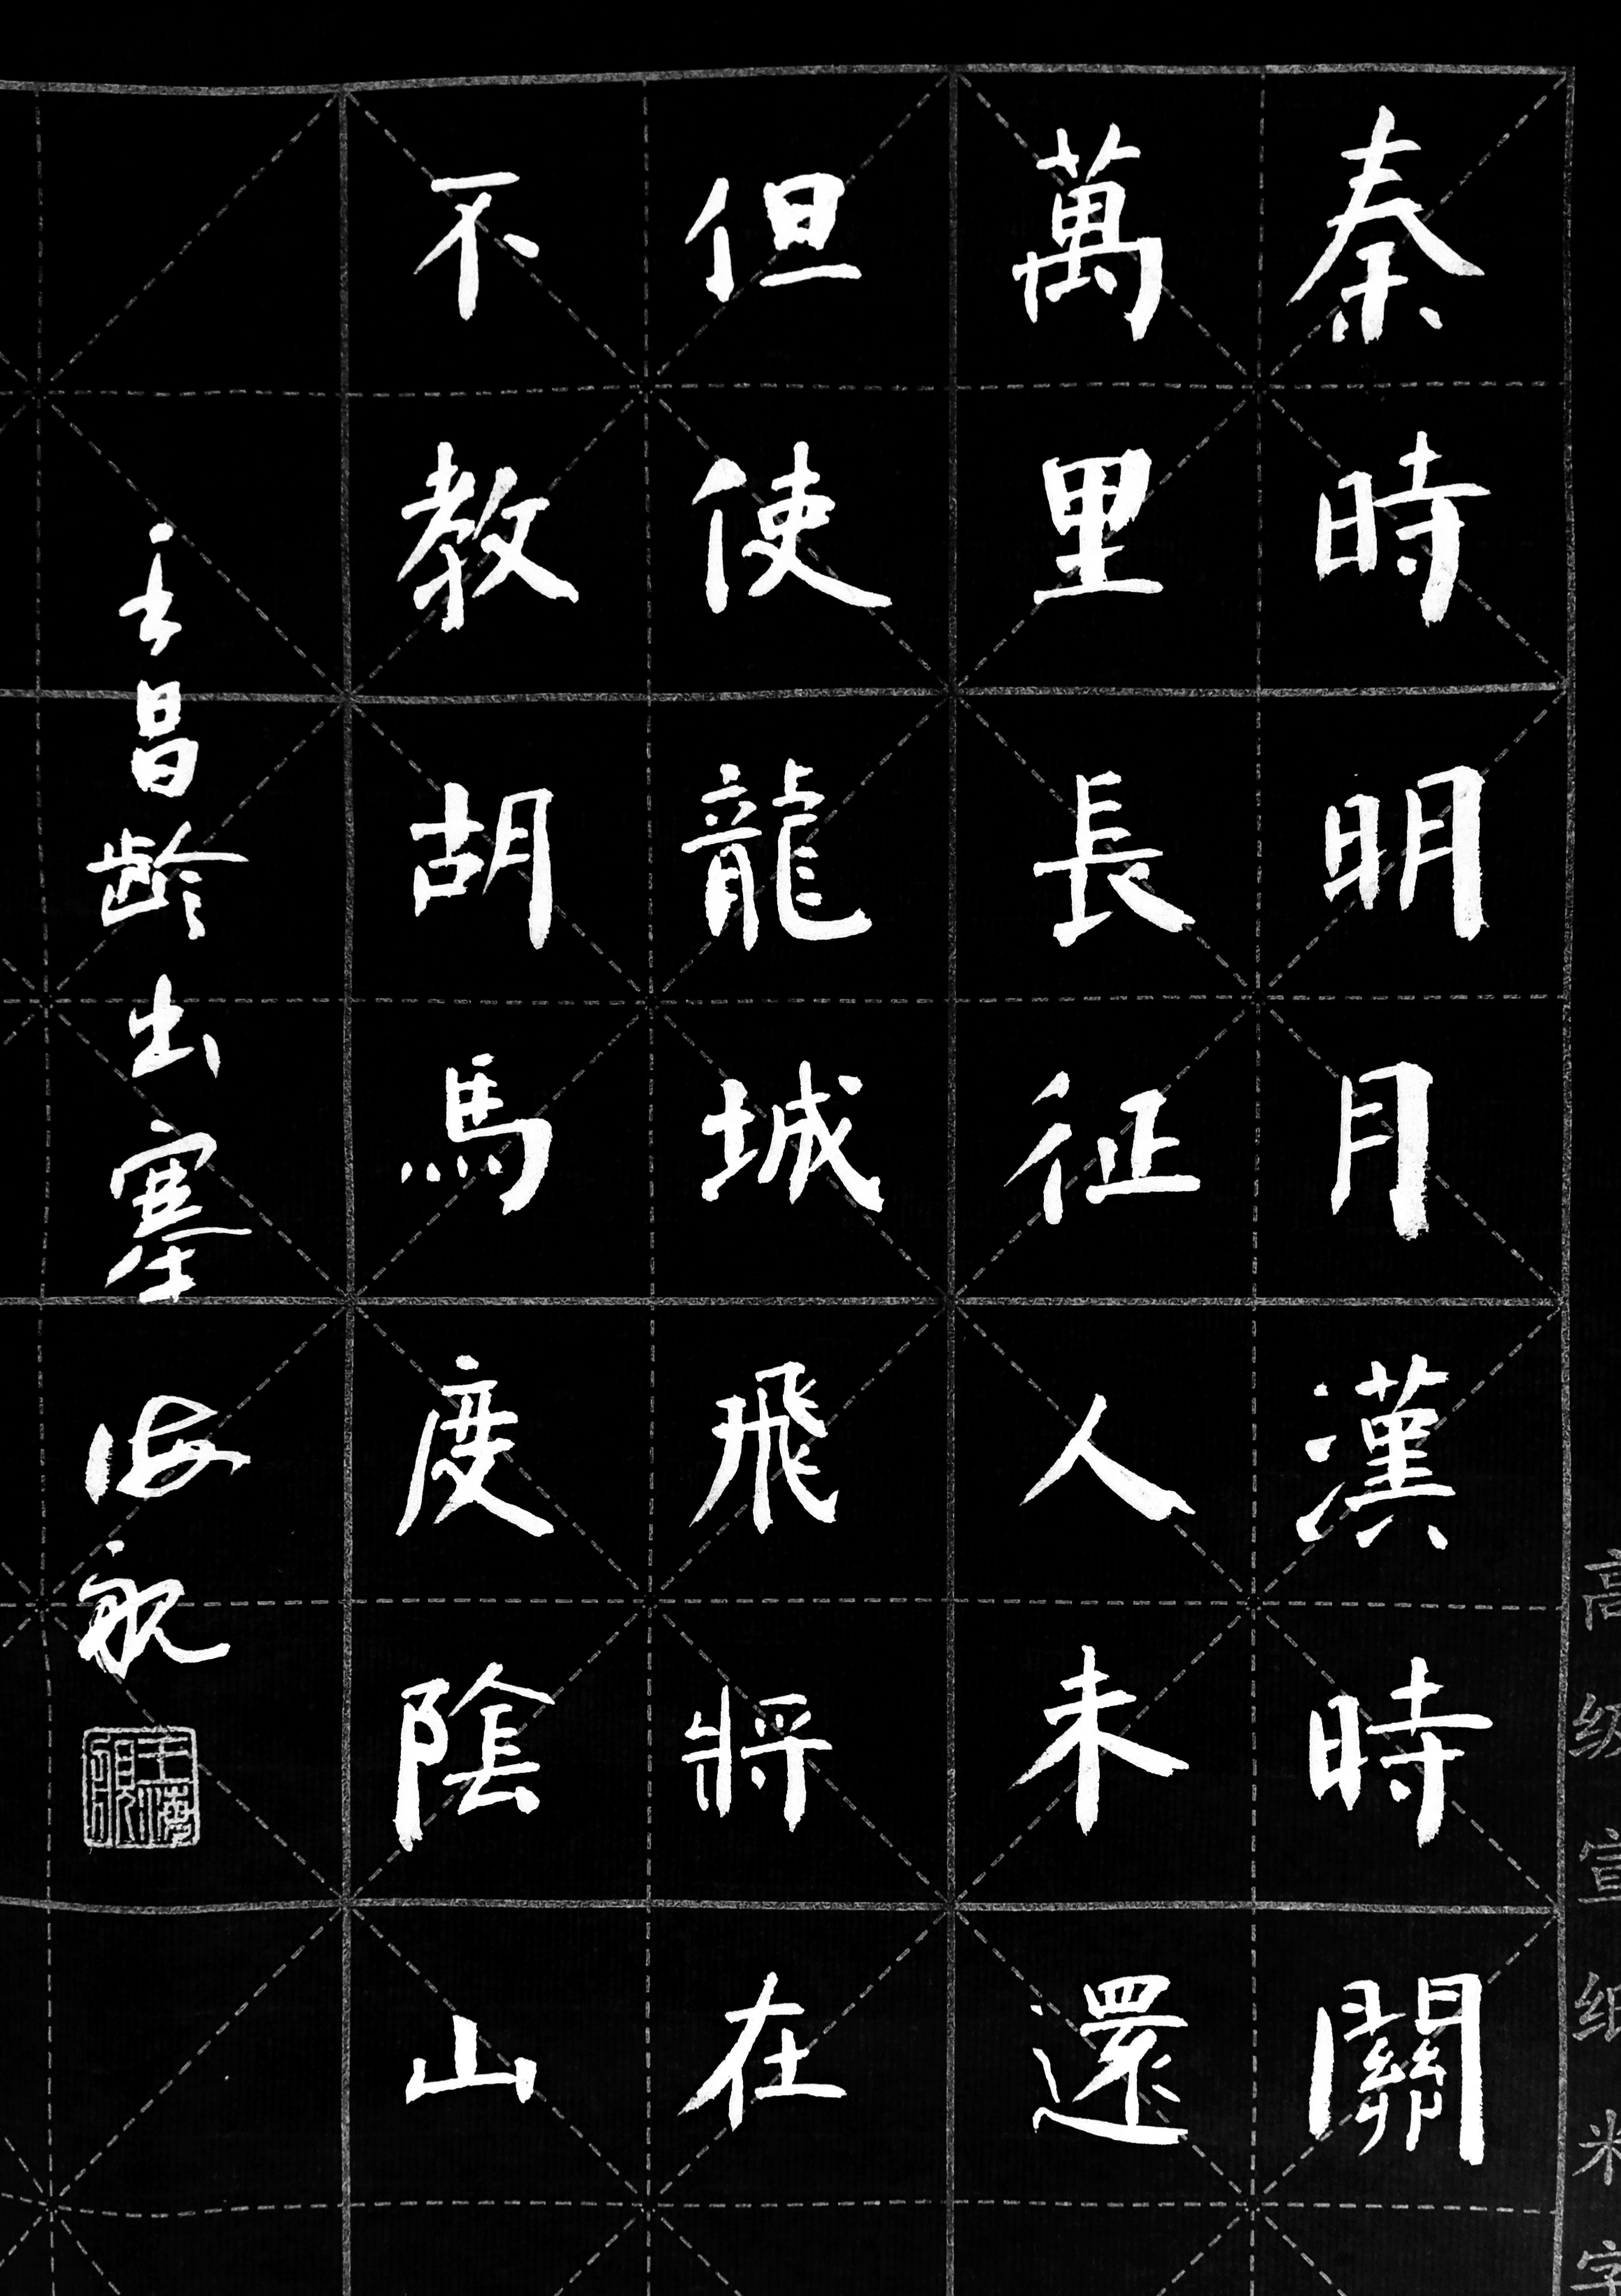 秦時明月漢時關
萬里長征人未還
但使龍城飛將在
不教胡馬度陰山
王昌龄出塞 海
高级宣纸米字